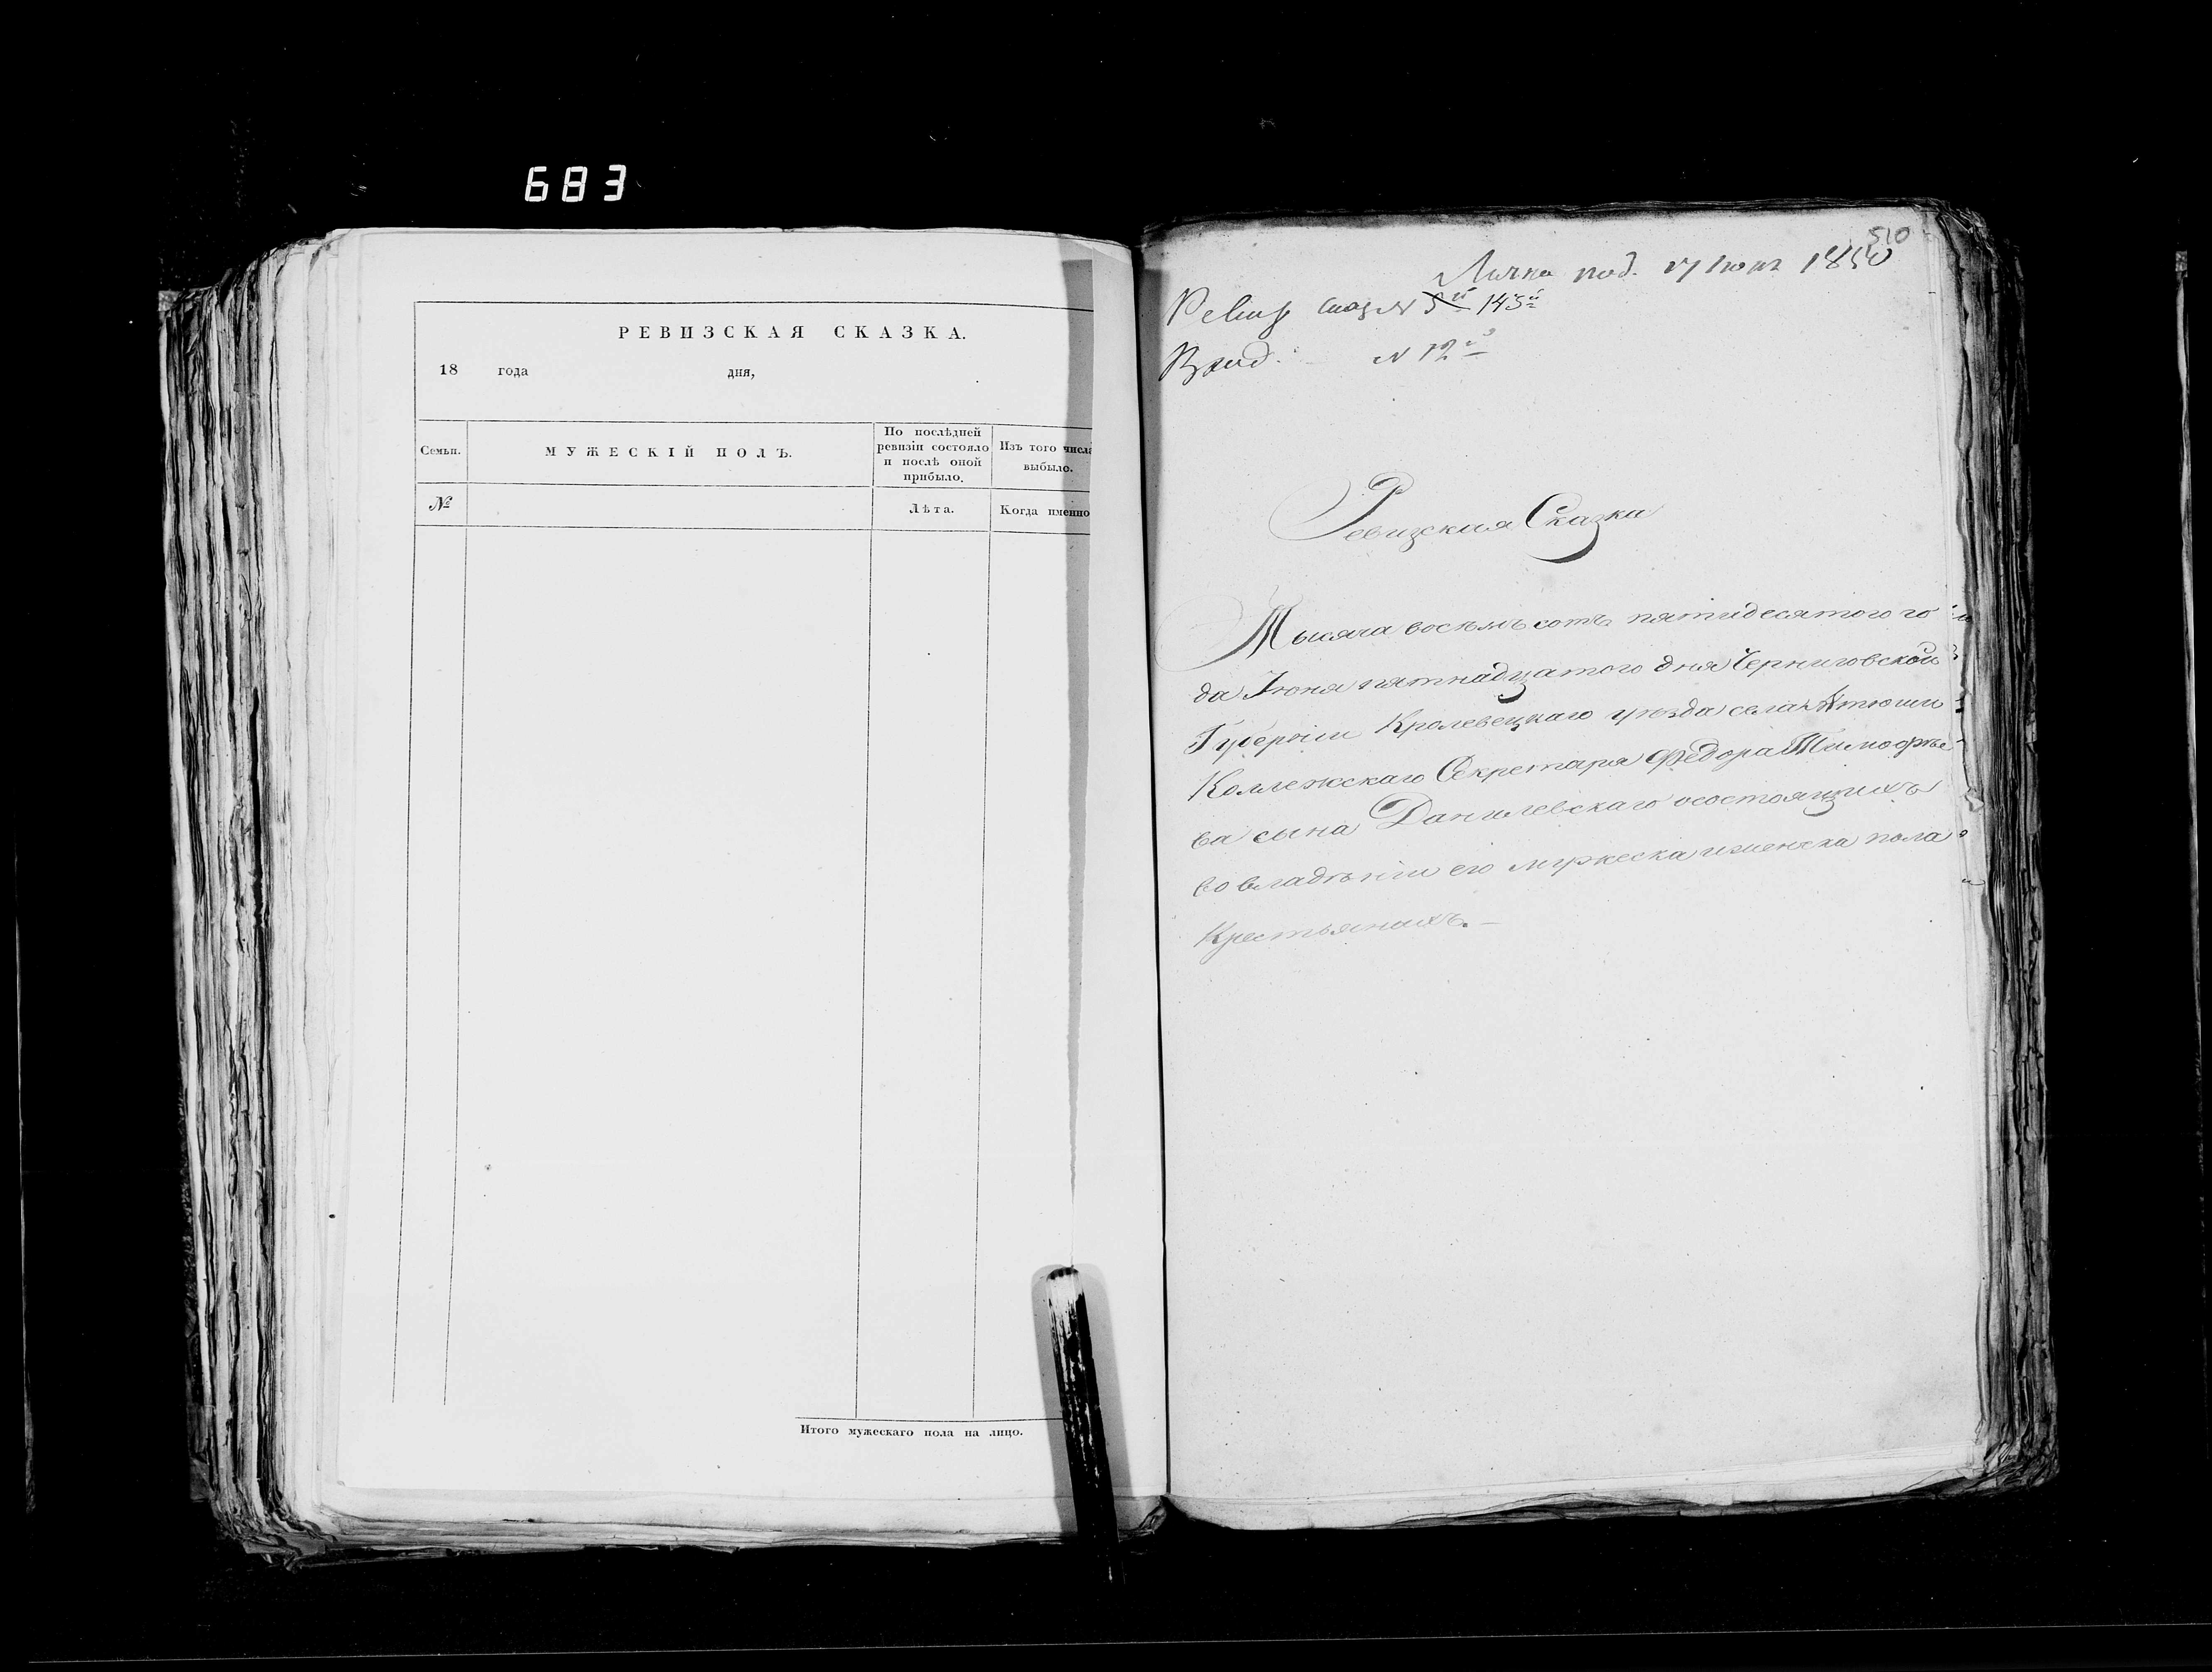 683
РЕВИЗСКАЯ СКАЗКА.
18 года дня,
Семьи.
МУЖЕСКІЙ ПОЛЪ.
По послѣдней
ревизіи состояло
и послѣ оной
прибыло.
Изъ того числа
выбыло.
№
Лѣта.
Когда именно
Итого мужескаго пола на лицо.
510
Лично под. 17 Іюня 1850
Ревиз Сказ N 5й 143й
N 12й
Ревизская Сказка
Тысяча восемь сотъ пятидесятого го
да Іюня пятнадцатого дня Черниговской
Губерніи Кролевецкаго уѣзда села Атюши
Коллежскаго Секретаря Федора Тимофѣе
ва сына Данилевскаго осостоящихъ
во владѣніи его мужеска иженска пола
Крестьянахъ.—